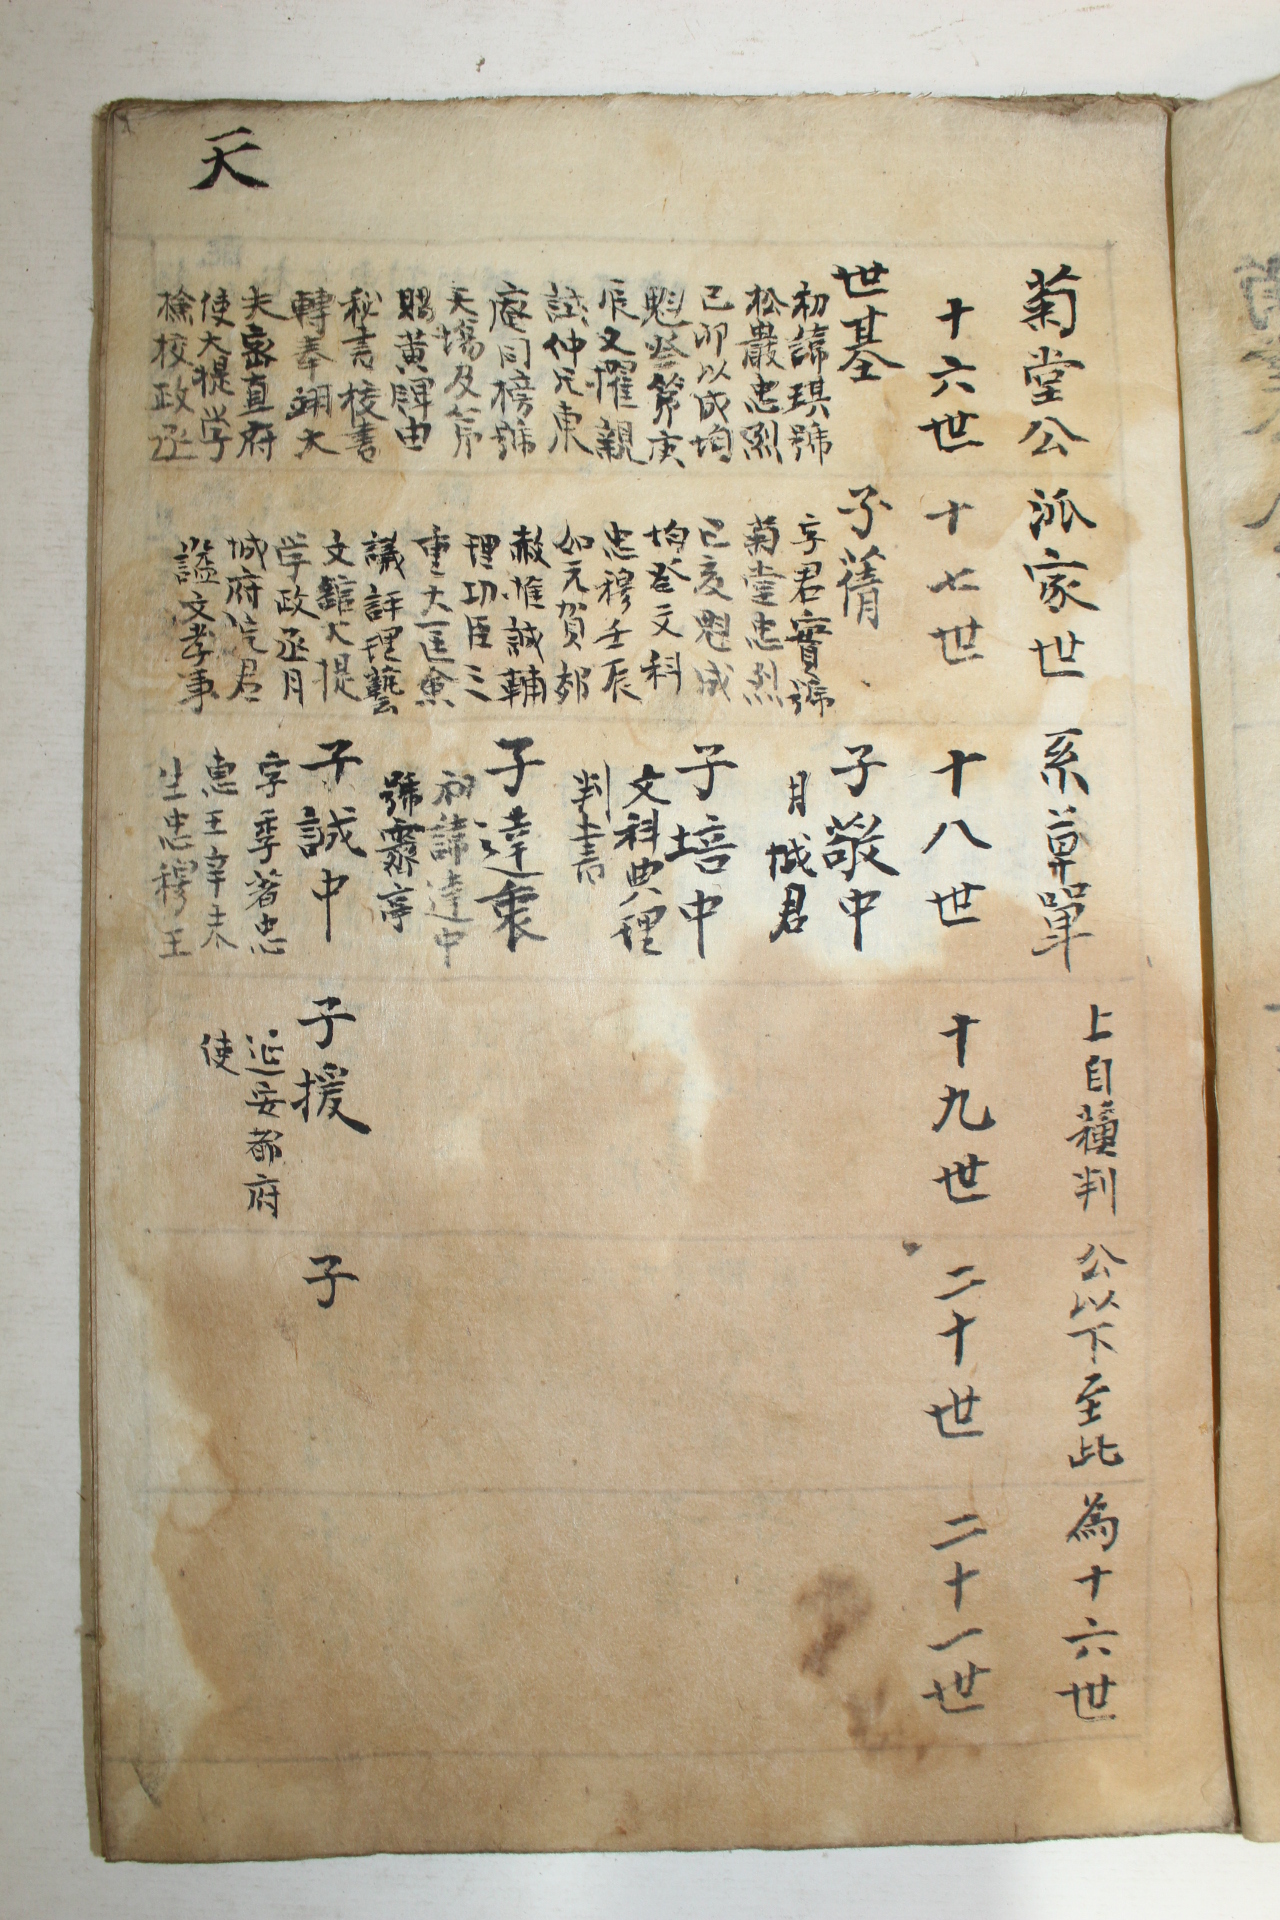 天
菊堂公派家世系草單
上自蘓判公以下至此為十六世
十六世
十七世
十八世
十九世
二十世
二十一世
世基
初諱琪號
松巖忠烈
己卯以成均
魁登第庚
辰又擢親
試仲氏東
庵同榜號
天場及第
賜黃牌由
秘書校書
轉奉翊大
夫密直府
使大提学
檢校政丞
子蒨
字君實號
菊堂忠烈
己亥魁成
均登文科
忠穆壬辰
如元賀郊
赦推誠輔
理功臣三
重大匡僉
議評理藝
文館大提
学政丞月
城府院君
諡文孝事
子敬中
月城君
子培中
文科典理
判書
子達衷
初諱達中
號霽亭
子誠中
字季著忠
惠王辛未
生忠穆王
子援
延安都府
使
子